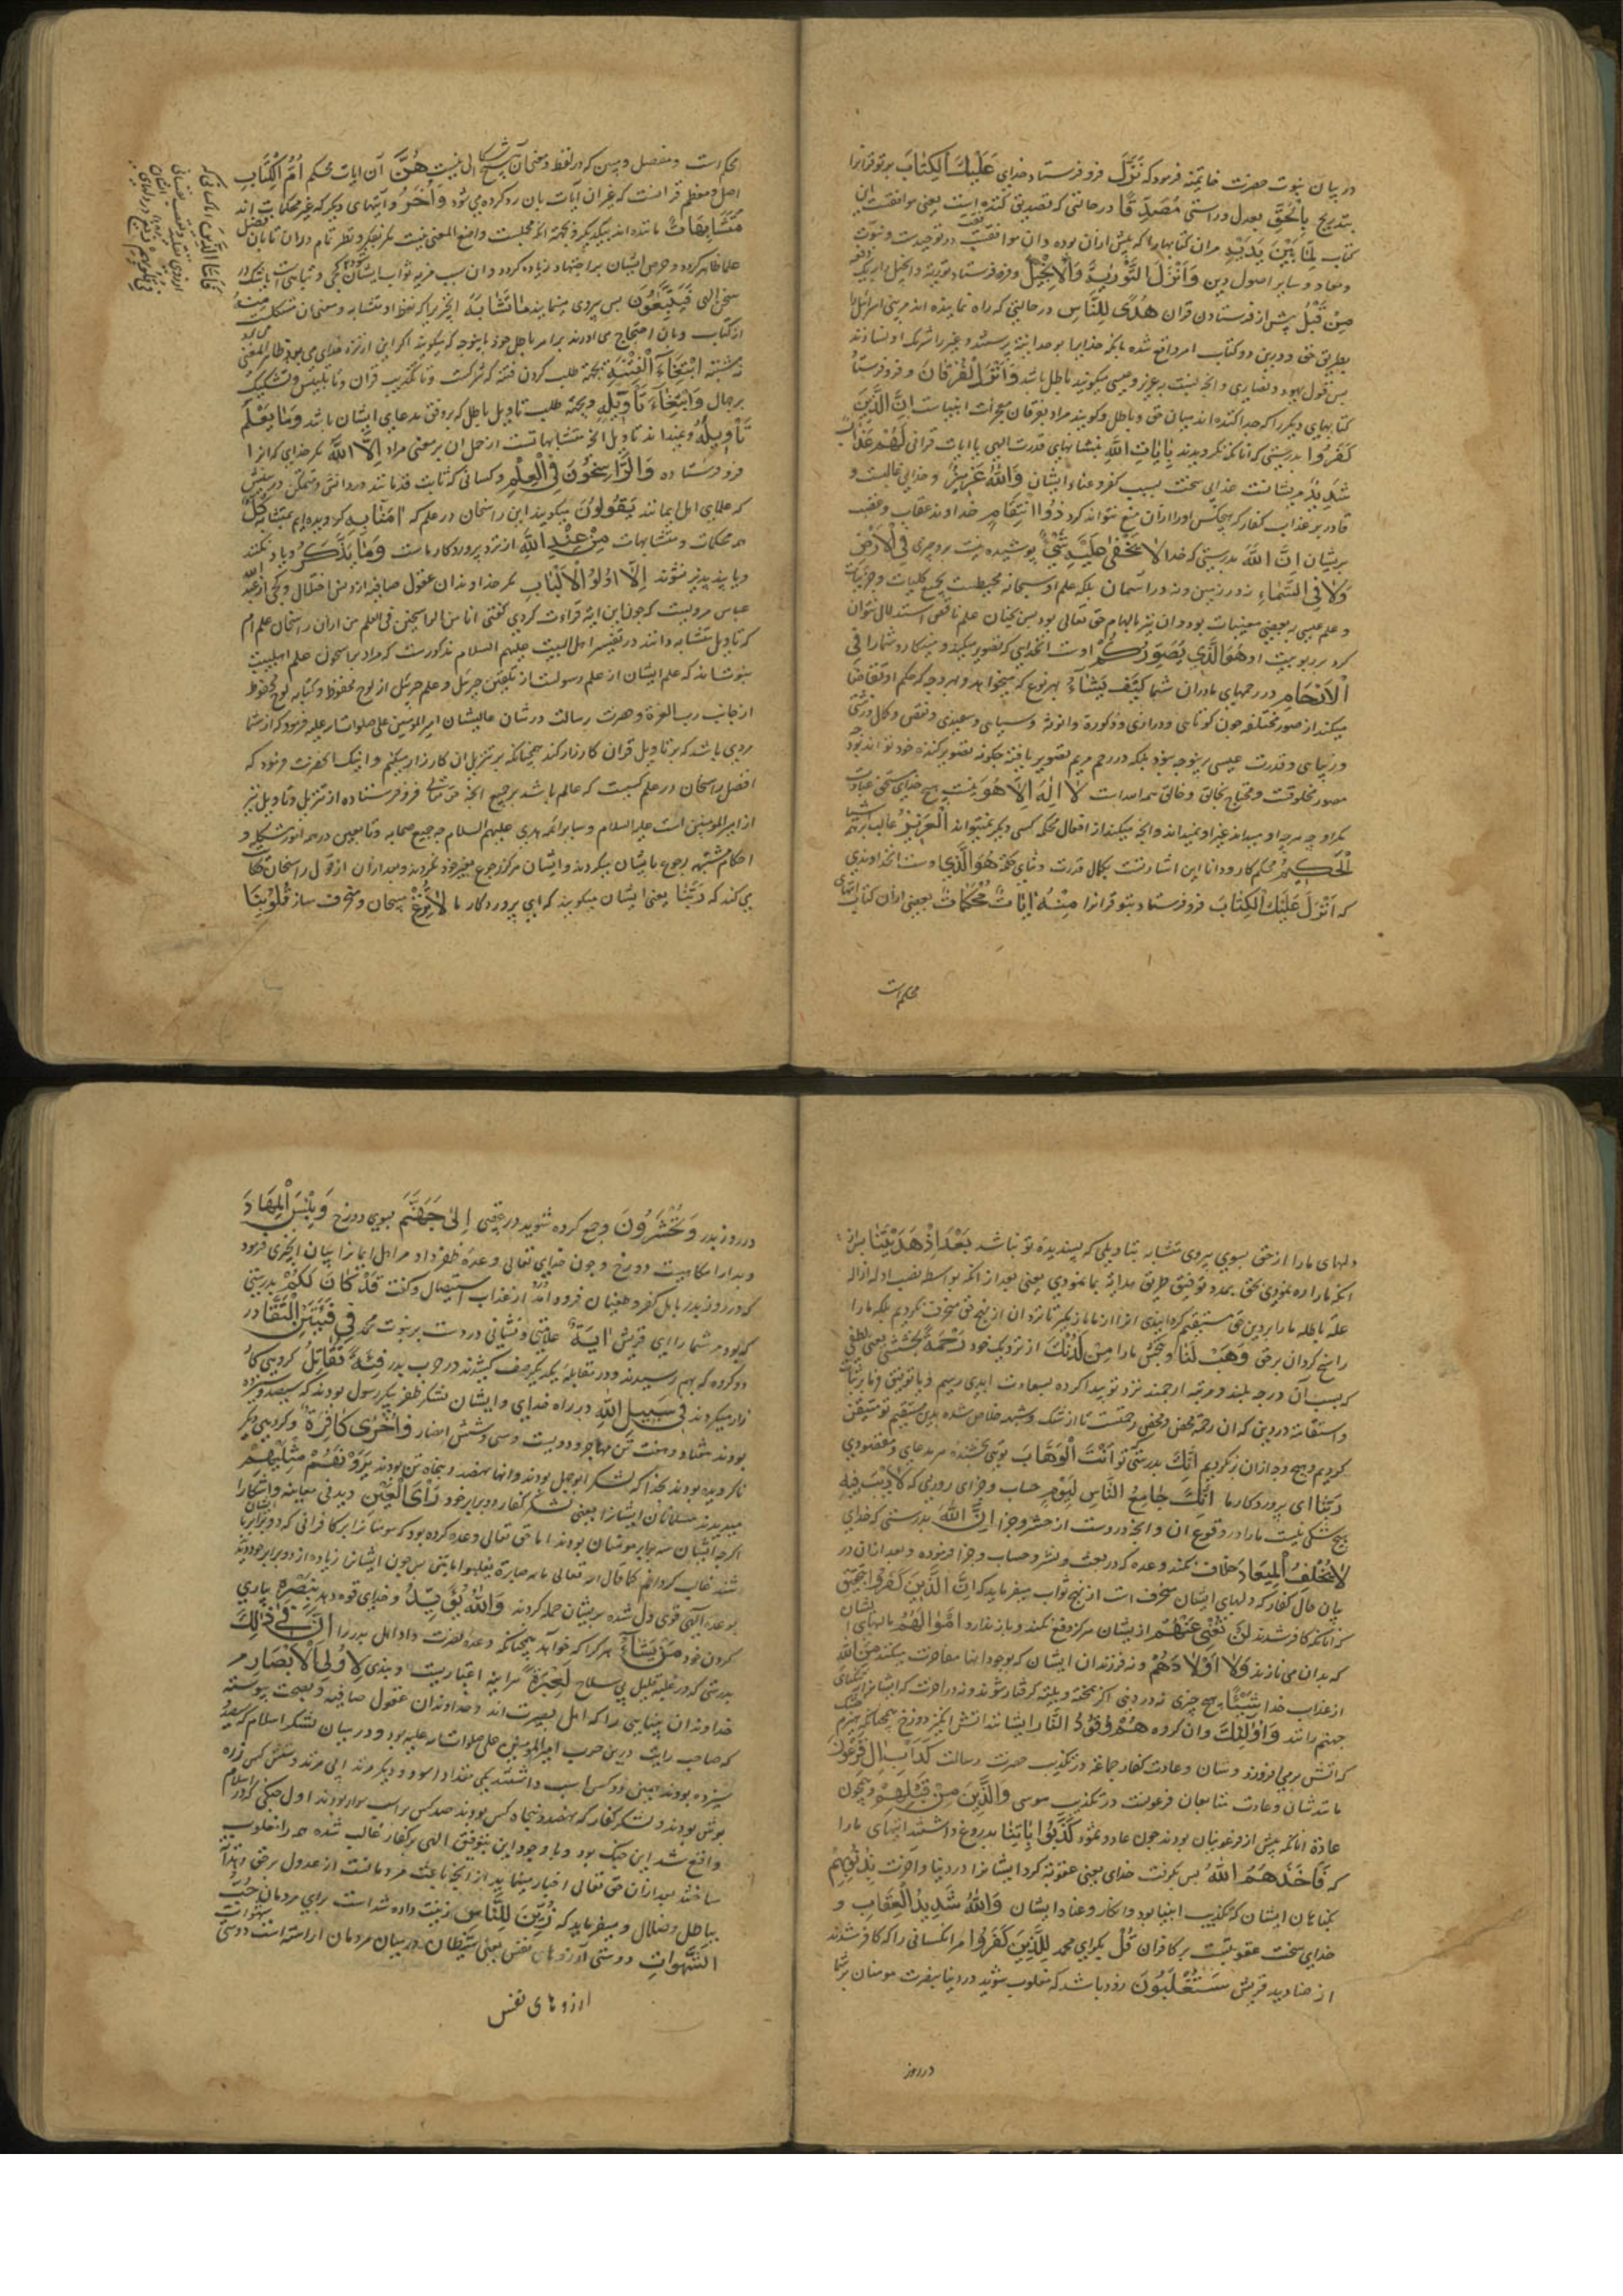 در بیان نبوت حضرت خاتمیّه فرمود که نَزَّلَ فرو فرستاد خدای عَلَیْكَ الْكِتَابَ بر تو قرانرا
بتدریج بِالْحَقِّ بعدل و راستی مُصَدِّقًا در حالتی که تصدیق کننده است یعنی موافقست این
کتاب لِمَا بَیْنَ یَدَیْهِ مران کتابهارا که پیش ازان بوده وان موافقت در توحیدست و نبوت
و معاد و سایر اصول دین وَاَنْزَلَ التَّوْرٰیةَ وَالْاِنْجِیْلَ و فرو فرستاد توریة و انجیل را
مِنْ قَبْلُ پیش از فرستادن قران هُدًی لِلنَّاسِ در حالتی که راه نماینده اند مر بنی اسرائیل را
بطریق حق و درین دو کتاب امر واقع شده بانکه خدایرا بوحدانیت پرستند و غیر را شریک او نسازند
پس قول یهود و نصاری وانچه نسبت به عزیر و عیسی میکویند باطل باشد وَاَنْزَلَ الْفُرْقَانَ و فرو فرستاد
کتابهای دیکر را که جدا کننده اند میان حق و باطل و کویند مراد بفرقان معجزات انبیاست اِنَّ الَّذِیْنَ
كَفَرُوا بدرستی که انانکه نکرویدند بِاٰیَاتِ اللّٰهِ بنشانهای قدرت الهی یا ایات قرانی لَهُمْ عَذَابٌ
شَدِیْدٌ مریشانست عذابی سخت بسبب کفر و عناد ایشان وَاللّٰهُ عَزِیْزٌ و خدای غالبست و
قادر بر عذاب کفار که هیچکس اورا ازان منع نتواند کرد ذُو انْتِقَامٍ خداوند عقاب و غضب
بریشان اِنَّ اللّٰهَ بدرستی که خدا لَا یَخْفٰی عَلَیْهِ شَیْءٌ پوشیده نیست برو چیزی فِی الْاَرْضِ
وَلَا فِی السَّمَاءِ نه در زمین ونه در آسمان بلکه علم او سبحانه محیطست بجمیع کلیات و جزئیات
و علم عیسی ببعضی مغیبات بود وان نیز بالهام حق تعالی بود پس بچنان علم ناقص استدلال نتوان
کرد بر ربوبیت او هُوَ الَّذِی یُصَوِّرُكُمْ اوست انخدای که تصویر میکند و مینکارد شمارا فِی
الْاَرْحَامِ در رحمهای مادران شما كَیْفَ یَشَآءُ بهر نوع که میخواهد و بهر وجه که حکم او تقاضا
میکند از صور مختلفه چون کوتاهی و درازی و ذکورة و انوثة و سیاهی و سفیدی و نقص و کمال و زشتی
و زیبایی و قدرت عیسی برینوجه نبود بلکه در رحم مریم تصویر یافته چکونه تصویر کننده خود تواند بود
مصور مخلوقست و محتاج بخالق و خالق همه اوست لَا اِلٰهَ اِلَّا هُوَ نیست هیچ خدای مستحق عبادت
مکر او چه هرچه او میداند غیر او نمیداند وانچه میکند از افعال محکمه کسی دیکر نمیتواند الْعَزِیْزُ غالب بر همه اشیا
الْحَكِیْمُ محکم کار و دانا این اشارتست بکمال قدرت و تناهی حکمة هُوَ الَّذِی اوست انخداوندی
که اَنْزَلَ عَلَیْكَ الْكِتَابَ فرو فرستاد بتو قرانرا مِنْهُ اٰیَاتٌ مُحْكَمَاتٌ بعضی ازان کتاب ایتهای
محکم است
محکم است و مفصل و مبین که در لفظ و معنی آن هیچ اشکالی نیست هُنَّ آن ایات محکم اُمُّ الْكِتَابِ
اصل و معظم قرانست که غیر ان آیات بان رد کرده می شود وَاُخَرُ و آیتهای دیکر که غیر محکمات اند
مُتَشَابِهَاتٌ مانند اند بیکدیکر وبجهة انکه مجملست واضح المعنی نیست مکر بفکر و نظر تام دران تا بان فضل
علما ظاهر کردد و حرص ایشان بر اجتهاد زیاده کردد وان سبب مزید ثواب ایشان کردد
سخن الهی فَیَتَّبِعُوْنَ پس پیروی مینمایند مَا تَشَابَهَ انچیزیرا که لفظ او متشابه و معنی ان مشکلست مِنْهُ
از کتاب وبان احتجاج می اورند بر امر باطل خود باینوجه که میکویند اکر این از نزد خدای می بود ظاهر المعنی
نه مشتبه ابْتِغَآءَ الْفِتْنَةِ بجهة طلب کردن فتنه که شرکست و یا تکذیب قران و یا تلبیس و تشکیک
بر جهال وَابْتِغَآءَ تَاْوِیْلِهِ وبجهة طلب تاویل باطل که بر وفق مدعای ایشان باشد وَمَا یَعْلَمُ
تَاْوِیْلَهُ و نمیداند تاویل انچه متشابهاتست از حمل ان بر معنی مراد اِلَّا اللّٰهُ مکر خدای که انرا
فرو فرستاده وَالرَّاسِخُوْنَ فِی الْعِلْمِ و کسانی که ثابت قدمانند در دانش و متمکن در بینش
که علمای اهل ایمانند یَقُوْلُوْنَ میکویند این راسخان در علم که اٰمَنَّا بِهِ کرویده ایم بمتشابه كُلٌّ
همه محکمات و متشابهات مِنْ عِنْدِ اللّٰهِ از نزد پروردکار ماست وَمَا یَذَّكَّرُ و یاد نکنند
و یا پندپذیر نشوند اِلَّا اُولُو الْاَلْبَابِ مکر خداوندان عقول صافیه از دنس اختلال و کجی از عبد الله
عباس مرویست که چون این ایة قراءت کردی کفتی انا من الراسخین فی العلم من ازان راسخان علم ام
که تاویل متشابه دانند در تفسیر اهل البیت علیهم السلام مذکورست که مراد براسخون علم اهلبیت
نبوتند که علم ایشان از علم رسولست از تلقین جبرئیل و علم جبرئیل از لوح محفوظ و کتابه لوح محفوظ
از جانب رب العزة و حضرت رسالت در شان عالیشان امیر المومنین علی صلوات الله علیه فرمود که از شما
مردی باشد که بر تاویل قران کارزار کند همچنانکه بر تنزیل ان کارزار میکنم و اینک انحضرت فرمود که
افضل راسخان در علم کسیست که عالم باشد بر جمیع انچه حق تعالی فرو فرستاده از تنزیل و تاویل نیز
از امیر المومنین است علیه السلام و سایر ائمه هدی علیهم السلام چه جمیع صحابه و تابعین در همه امور مشکله و
احکام مشتبهه رجوع بایشان میکردند و ایشان هرکز رجوع بغیر خود نکردند و بعد ازان از قول راسخان حکایت
می کند که رَبَّنَا یعنی ایشان میکویند که ای پروردکار ما لَا تُزِغْ مپیچان و منحرف مساز قُلُوْبَنَا
فَاَمَّا الَّذِیْنَ اما کسانی که
فِی قُلُوْبِهِمْ زَیْغٌ در دلهای
دلهای مارا از حق بسوی پیروی متشابه بتاویلی که پسندیده تو نباشد بَعْدَ اِذْ هَدَیْتَنَا پس از
انکه مارا راه نمودی بحق بمدد توفیق طریق هدایة بما نمودی یعنی بعد از انکه بواسطه نصب ادله ازاله
عله باطله مارا بر دین حق مستقیم کردانیدی انرا از ما باز مکیر تا نزد ان از نهج حق منحرف نکردیم بلکه مارا
راسخ کردان بر حق وَهَبْ لَنَا و ببخش مارا مِنْ لَدُنْكَ از نزدیک خود رَحْمَةً بخششی یعنی لطفی
که بسبب آن درجه بلند و مرتبه ارجمند نزد تو پیدا کرده بسعادت ابدی رسیم و یا توفیق و یا بر ثبات
و استقامة در دین که ان رحمة محض و محض رحمتست تا از شک و شبهه خلاص شده بدین مستقیم تو متیقن
کردیم و بهیچ وجه ازان بر نکردیم اِنَّكَ بدرستی تو اَنْتَ الْوَهَّابُ تویی بخشنده هر مدعای و مقصودی
رَبَّنَا ای پروردکار ما اِنَّكَ جَامِعُ النَّاسِ لِیَوْمٍ حساب و جزای روزی که لَا رَیْبَ فِیْهِ
هیچ شکی نیست مارا در وقوع ان و انچه دروست از حشر و جزا اِنَّ اللّٰهَ بدرستی که خدای
لَا یُخْلِفُ الْمِیْعَادَ خلاف نکند وعده که در بعث و نشر و حساب و جزا فرموده و بعد ازان در
بیان حال کفار که دلهای ایشان منحرف است از نهج ثواب میفرماید که اِنَّ الَّذِیْنَ كَفَرُوا بتحقیق
که انانکه کافر شدند لَنْ تُغْنِیَ عَنْهُمْ از یشان هرکز دفع نکند و باز ندارد اَمْوَالُهُمْ مالهای ایشان
که بدان می نازند وَلَا اَوْلَادُهُمْ و نه فرزندان ایشان که بوجود انها مفاخرت میکنند مِنَ اللّٰهِ
از عذاب خدا شَیْئًا هیچ چیزی نه در دنیا اکر بمحنة و بلیه کرفتار شوند و نه در اخرت که ایشانرا
جهنم رانند وَاُولٰئِكَ وان کروه هُمْ وَقُوْدُ النَّارِ ایشانند اتش انکیز دوزخ همچنانکه هیزم خشک
که اتش بر می فروزد و شان و عادت کفار جماعه در تکذیب حضرت رسالت كَدَاْبِ اٰلِ فِرْعَوْنَ
مانند شان و عادت متابعان فرعونست در تکذیب موسی وَالَّذِیْنَ مِنْ قَبْلِهِمْ و همچون
عادة انانکه پیش از فرعونیان بودند چون عاد و ثمود كَذَّبُوا بِاٰیَاتِنَا بدروغ داشتند ایتهای مارا
که فَاَخَذَهُمُ اللّٰهُ پس بکرفت خدای یعنی عقوبة کرد ایشانرا در دنیا و اخرت بِذُنُوْبِهِمْ
بکناهان ایشان که تکذیب انبیا بود و انکار و عناد ایشان وَاللّٰهُ شَدِیْدُ الْعِقَابِ و
خدای سخت عقوبتست بر کافران قُلْ بکو ای محمد لِلَّذِیْنَ كَفَرُوا مر انکسانی را که کافر شدند
از صنادید قریش سَتُغْلَبُوْنَ زود باشد که مغلوب شوید در دنیا بنصرت مومنان بر شما
در روز
در روز بدر وَتُحْشَرُوْنَ و جمع کرده شوید در عقبی اِلٰی جَهَنَّمَ بسوی دوزخ وَبِئْسَ الْمِهَادُ
و بد ارامکاهیست دوزخ و چون خدای تعالی وعده ظفر داد مر اهل ایمانرا بیان انچیزی فرمود
که در روز بدر باهل کفر و طغیان فرود آمد از عذاب استیصال و کفت قَدْ كَانَ لَكُمْ بدرستی
که بود مر شما را ای قریش اٰیَةٌ علامتی و نشانی درست بر نبوت محمد فِی فِئَتَیْنِ الْتَقَتَا در
دو کروه که بهم رسیدند و در مقابله یکدیکر صف کشیدند در حرب بدر فِئَةٌ تُقَاتِلُ کروهی کار
زار میکردند فِی سَبِیْلِ اللّٰهِ در راه خدای و ایشان لشکر ظفر پیکر رسول بودند که سیصد و سیزده
بودند هفتاد و هفت تن مهاجر و دویست و سی و شش انصار وَاُخْرٰی كَافِرَةٌ و کروهی دیکر
ناکرویده بودند بخدا که لشکر ابوجهل بودند و انها نهصد و پنجاه تن بودند یَرَوْنَهُمْ مِثْلَیْهِمْ
میدیدند مسلمانان ایشانرا یعنی لشکر کفار دو برابر خود رَاْیَ الْعَیْنِ دیدنی معاینه و اشکارا
اکرچه ایشان سه برابر مومنان بودند اما حق تعالی وعده کرده بود که مومنانرا بر کافرانی که دو برابر ایشان
شند غالب کردانم کما قال الله تعالی مائة صابرة یغلبوا مایتین پس چون ایشانرا زیاده از دو برابر خود ندیدند
بوعده الهی قوی دل شده بریشان حمله کردند وَاللّٰهُ یُؤَیِّدُ و خدای قوه دهد بِنَصْرِهِ بیاری
کردن خود مَنْ یَشَآءُ هر کرا که خواهد همچنانکه وعده نصرت داد اهل بدر را اِنَّ فِی ذٰلِكَ
بدرستی که در غلبه قلیل بی سلاح لَعِبْرَةً هراینه اعتباریست و پندی لِاُولِی الْاَبْصَارِ مر
خداوندان بینایی را که اهل بصیرت اند و خداوندان عقول صافیه و بصحت پیوسته
که صاحب رایت درین حرب امیر المومنین علی صلوات الله علیه بود و در میان لشکر اسلام که سیصد و
سیزده بودند همین دو کس اسب داشتند یکی مقداد اسود و دیکر مرثد ابی مرثد و شش کس زره
پوش بودند و لشکر کفار که نهصد و پنجاه کس بودند صد کس بر اسب سوار بودند اول جنکی که در اسلام
واقع شد این جنک بود و با وجود این بتوفیق الهی بر کفار غالب شده همه را مغلوب
ساختند بعد ازان حق تعالی اخبار مینماید از انچه باعث مردمانست از عدول بر حق
بباطل و ضلال و میفرماید که زُیِّنَ لِلنَّاسِ زینت داده شد است برای مردمان حُبُّ
الشَّهَوَاتِ دوستی آرزوهای نفس یعنی شیطان در میان مردمان اراسته است دوستی
ارزوهای نفس